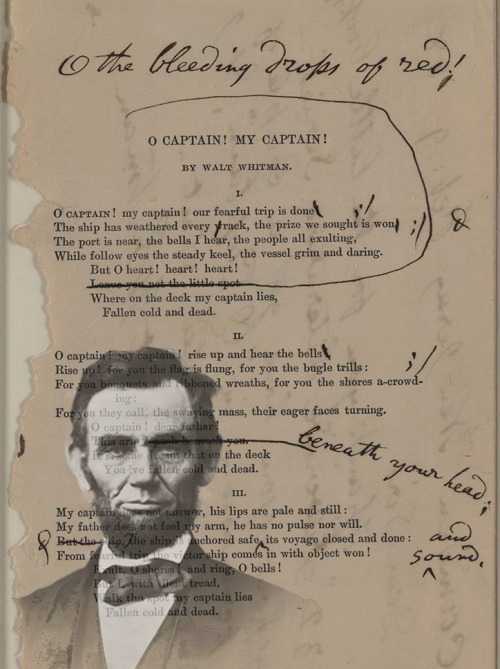 O the bleeding drops of red!
O CAPTAIN! MY CAPTAIN!
BY WALT WHITMAN.
I.
O CAPTAIN! my captain! our fearful trip is done ;/
The ship has weathered every wrack, the prize we sought is won ;/
The port is near, the bells I hear, the people all exulting,
While follow eyes the steady keel, the vessel grim and daring.
But O heart! heart! heart!
Leave you not the little spot
Where on the deck my captain lies,
Fallen cold and dead.
II.
O captain! my captain! rise up and hear the bells ;/
Rise up! for you the flag is flung, for you the bugle trills:
For you bouquets and ribboned wreaths, for you the shores a-crowd-
ing:
For you they call, the swaying mass, their eager faces turning.
O captain! dear father!
This arm beneath you beneath your head;
It is some dream that on the deck
You've fallen cold and dead.
III.
My captain does not answer, his lips are pale and still:
My father does not feel my arm, he has no pulse nor will.
But the ship, The ship is anchored safe, its voyage closed and done: and
From fearful trip the victor ship comes in with object won! sound,
Exult, O shores! and ring, O bells!
But I, with silent tread,
Walk the spot my captain lies
Fallen cold and dead.